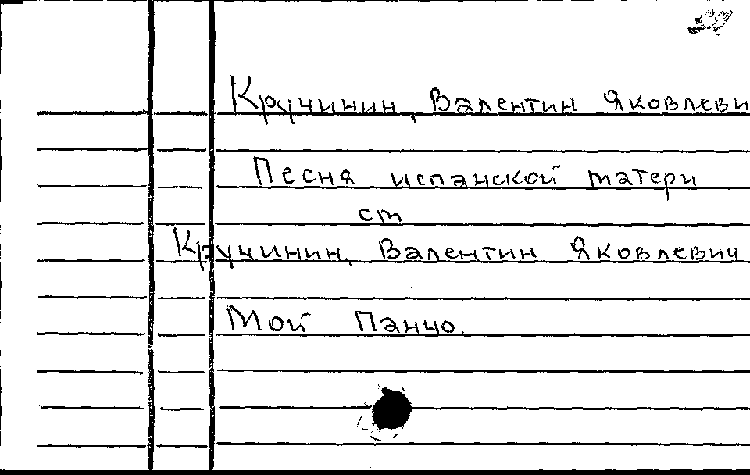 Кручинин, Валентин Яковлеви
Песня испанской матери
ст
Кручинин, Валентин Яковлевич
Мой Панчо.